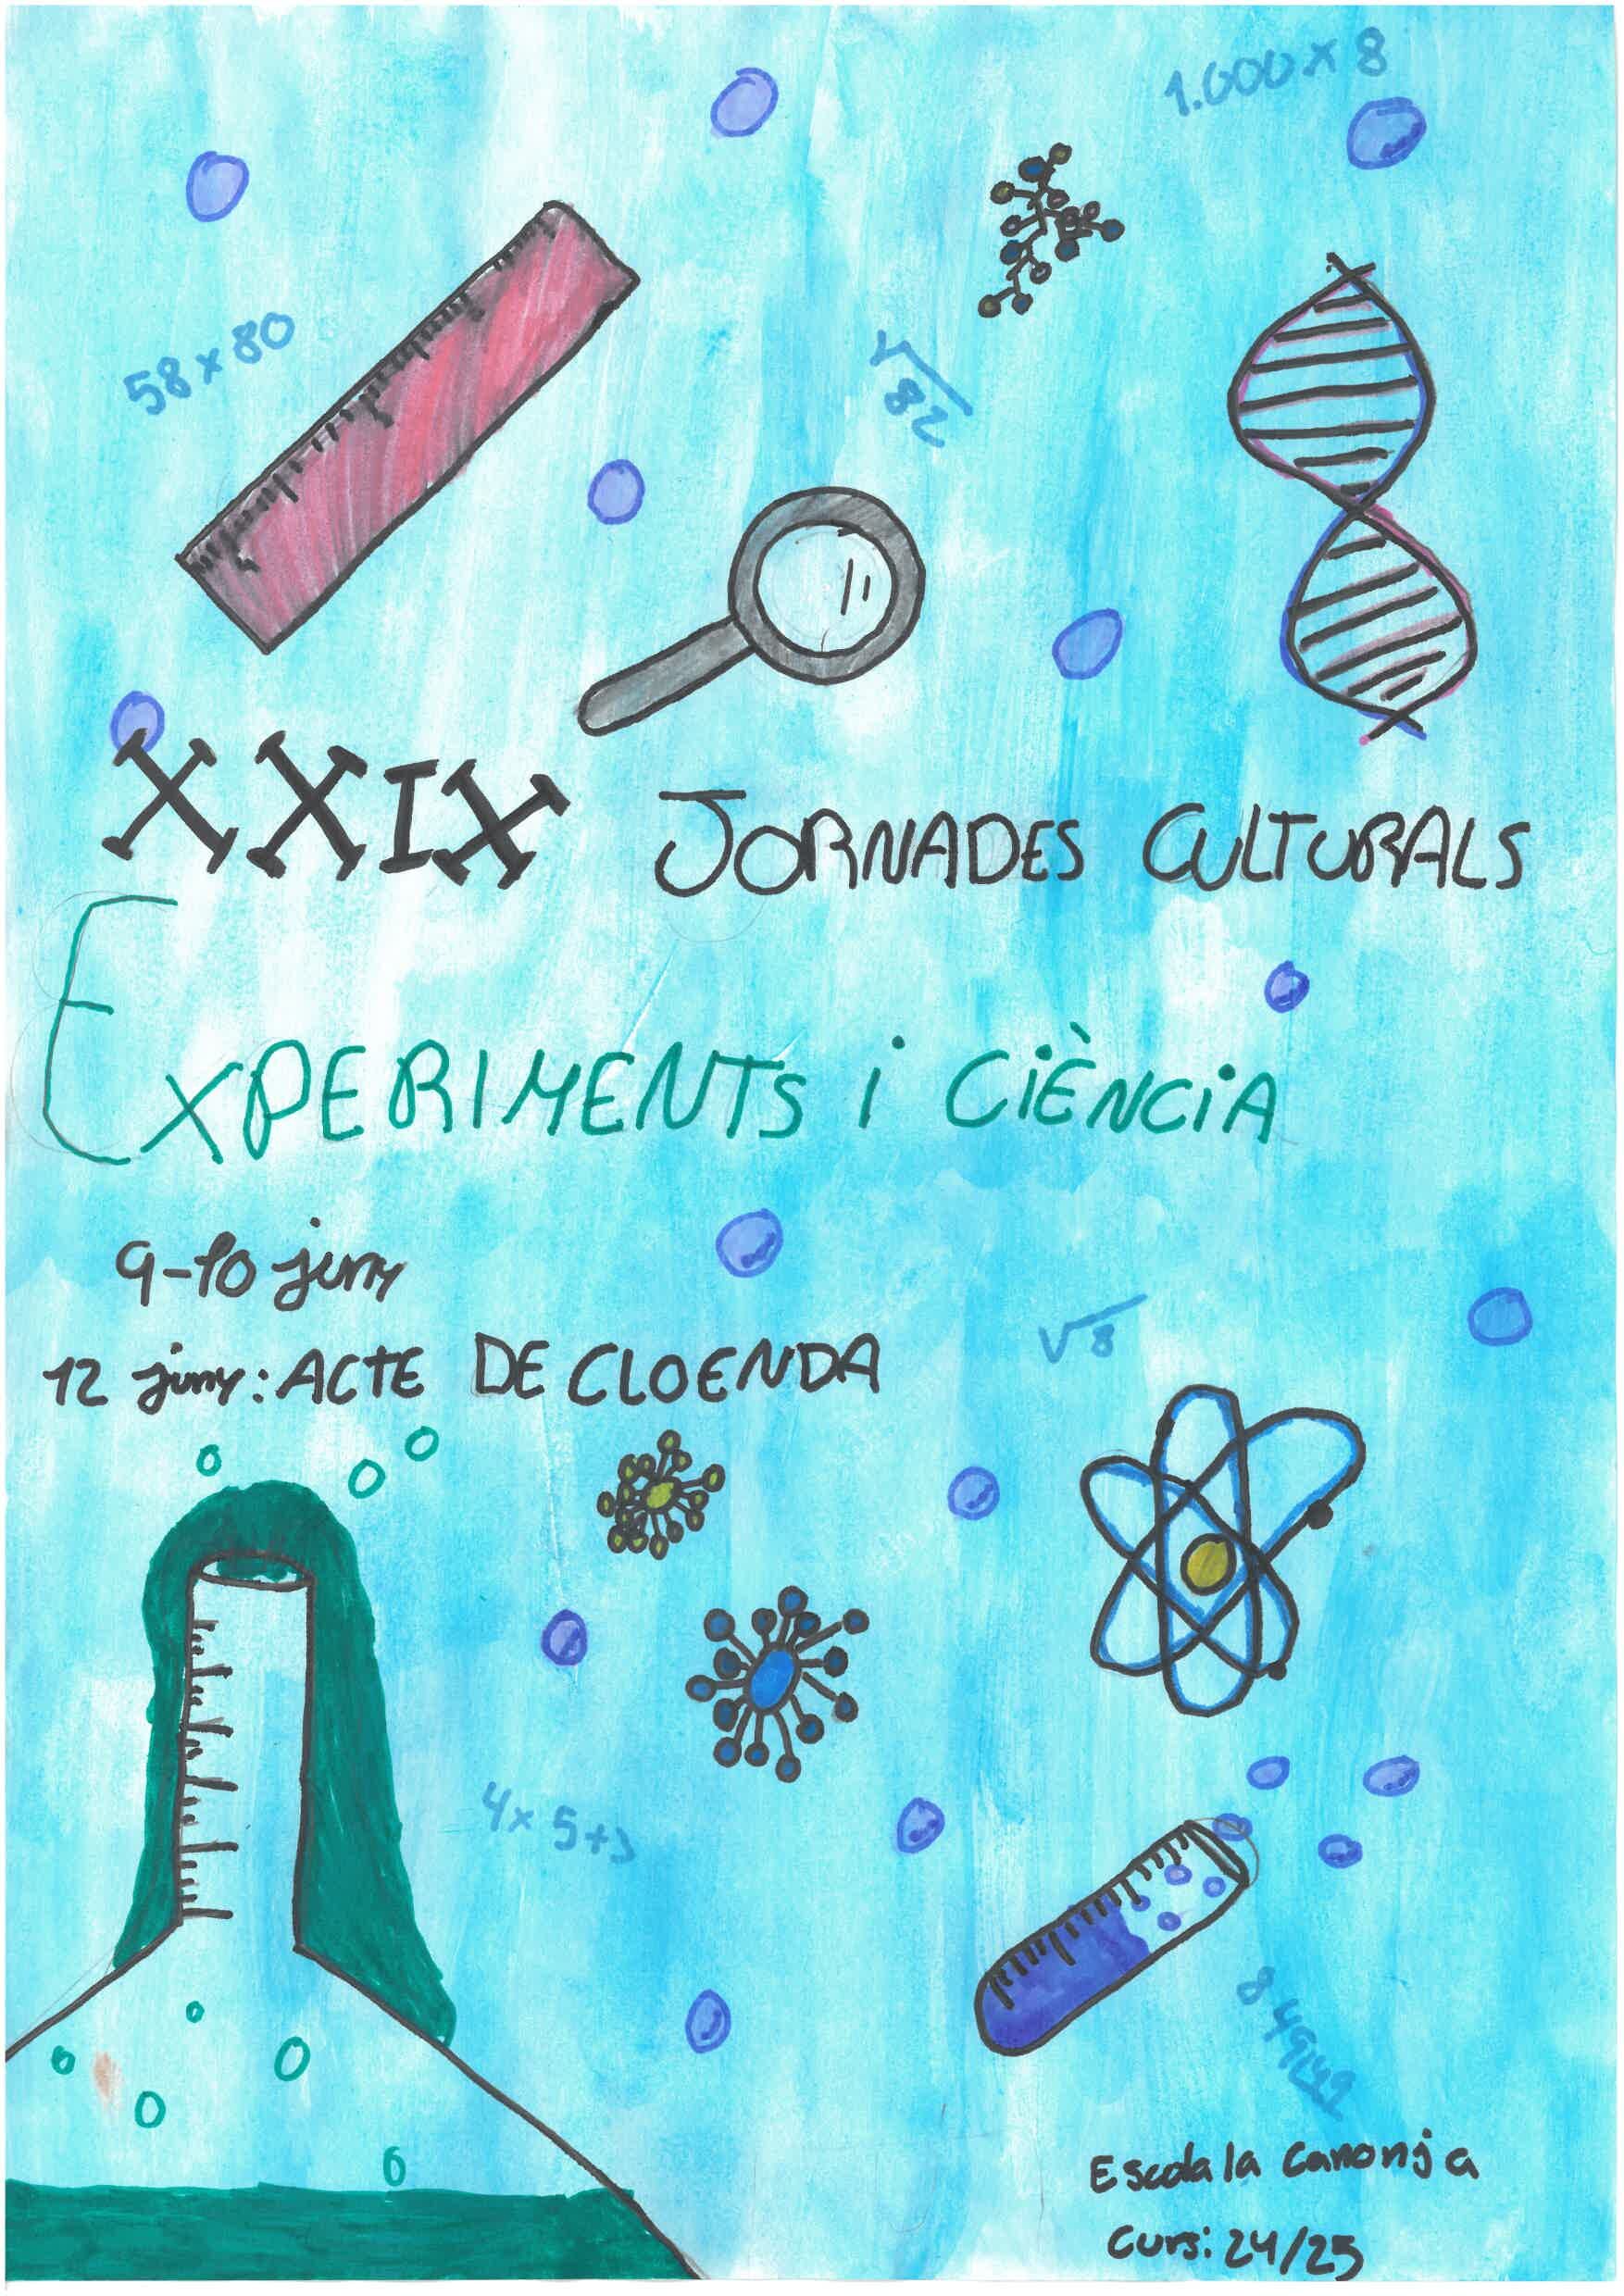 1.000 x 8
58 x 80
√82
XXIX JORNADES CULTURALS
EXPERIMENTS i CIÈNCIA
9-10 juny
12 juny: ACTE DE CLOENDA
√8
4x 5+
Escola la Canonja
Curs: 24/25